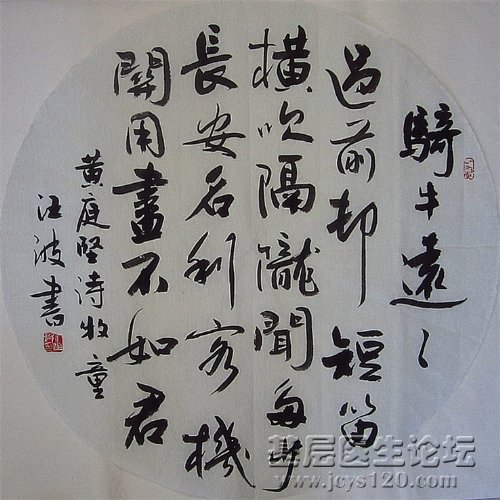 騎牛遠々
過前邨短笛
横吹隔隴聞多少
長安名利客機
關用盡不如君
黄庭坚詩牧童
汪波書
基层医生论坛
www.jcys120.com